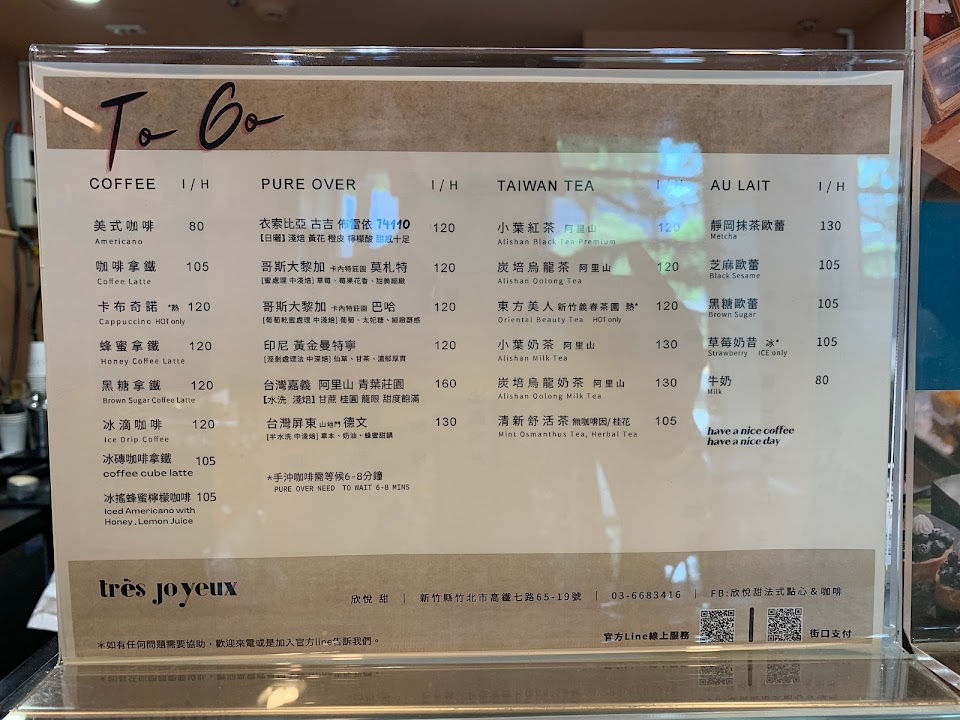 To Go
COFFEE I / H
美式咖啡 80
Americano
咖啡拿鐵 105
Coffee Latte
卡布奇諾 *熱 120
Cappuccino HOT only
蜂蜜拿鐵 120
Honey Coffee Latte
黑糖拿鐵 120
Brown Sugar Coffee Latte
冰滴咖啡 120
Ice Drip Coffee
冰磚咖啡拿鐵 105
coffee cube latte
冰搖蜂蜜檸檬咖啡 105
Iced Americano with
Honey, Lemon Juice
PURE OVER I / H
衣索比亞 古吉 佈雷依 74110 120
【日曬】淺焙 黃花 橙皮 檸檬酸 甜感十足
哥斯大黎加 卡內特莊園 莫札特 120
[蜜處理 中淺焙] 草莓、莓果花香、甜美細緻
哥斯大黎加 卡內特莊園 巴哈 120
[葡萄乾蜜處理 中淺焙] 葡萄、太妃糖、細緻酸感
印尼 黃金曼特寧 120
[溼剝處理法 中深焙] 仙草、甘茶、濃郁厚實
台灣嘉義 阿里山 青葉莊園 160
【水洗 淺焙】甘蔗 桂圓 龍眼 甜度飽滿
台灣屏東 山地門 德文 130
[半水洗 中淺焙] 草本、奶油、蜂蜜甜韻
*手沖咖啡需等候6-8分鐘
PURE OVER NEED TO WAIT 6-8 MINS
TAIWAN TEA I / H
小葉紅茶 阿里山 120
Alishan Black Tea Premium
炭焙烏龍茶 阿里山 120
Alishan Oolong Tea
東方美人 新竹義春茶園 熱* 120
Oriental Beauty Tea HOT only
小葉奶茶 阿里山 130
Alishan Milk Tea
炭焙烏龍奶茶 阿里山 130
Alishan Oolong Milk Tea
清新舒活茶 無咖啡因/桂花 105
Mint Osmanthus Tea, Herbal Tea
AU LAIT I / H
靜岡抹茶歐蕾 130
Metcha
芝麻歐蕾 105
Black Sesame
黑糖歐蕾 105
Brown Sugar
草莓奶昔 冰* 105
Strawberry ICE only
牛奶 80
Milk
have a nice coffee
have a nice day
très joyeux
欣悅 甜 | 新竹縣竹北市高鐵七路65-19號 | 03-6683416 | FB:欣悅甜法式點心&咖啡
*如有任何問題需要協助，歡迎來電或是加入官方line告訴我們。
官方Line線上服務 | 街口支付